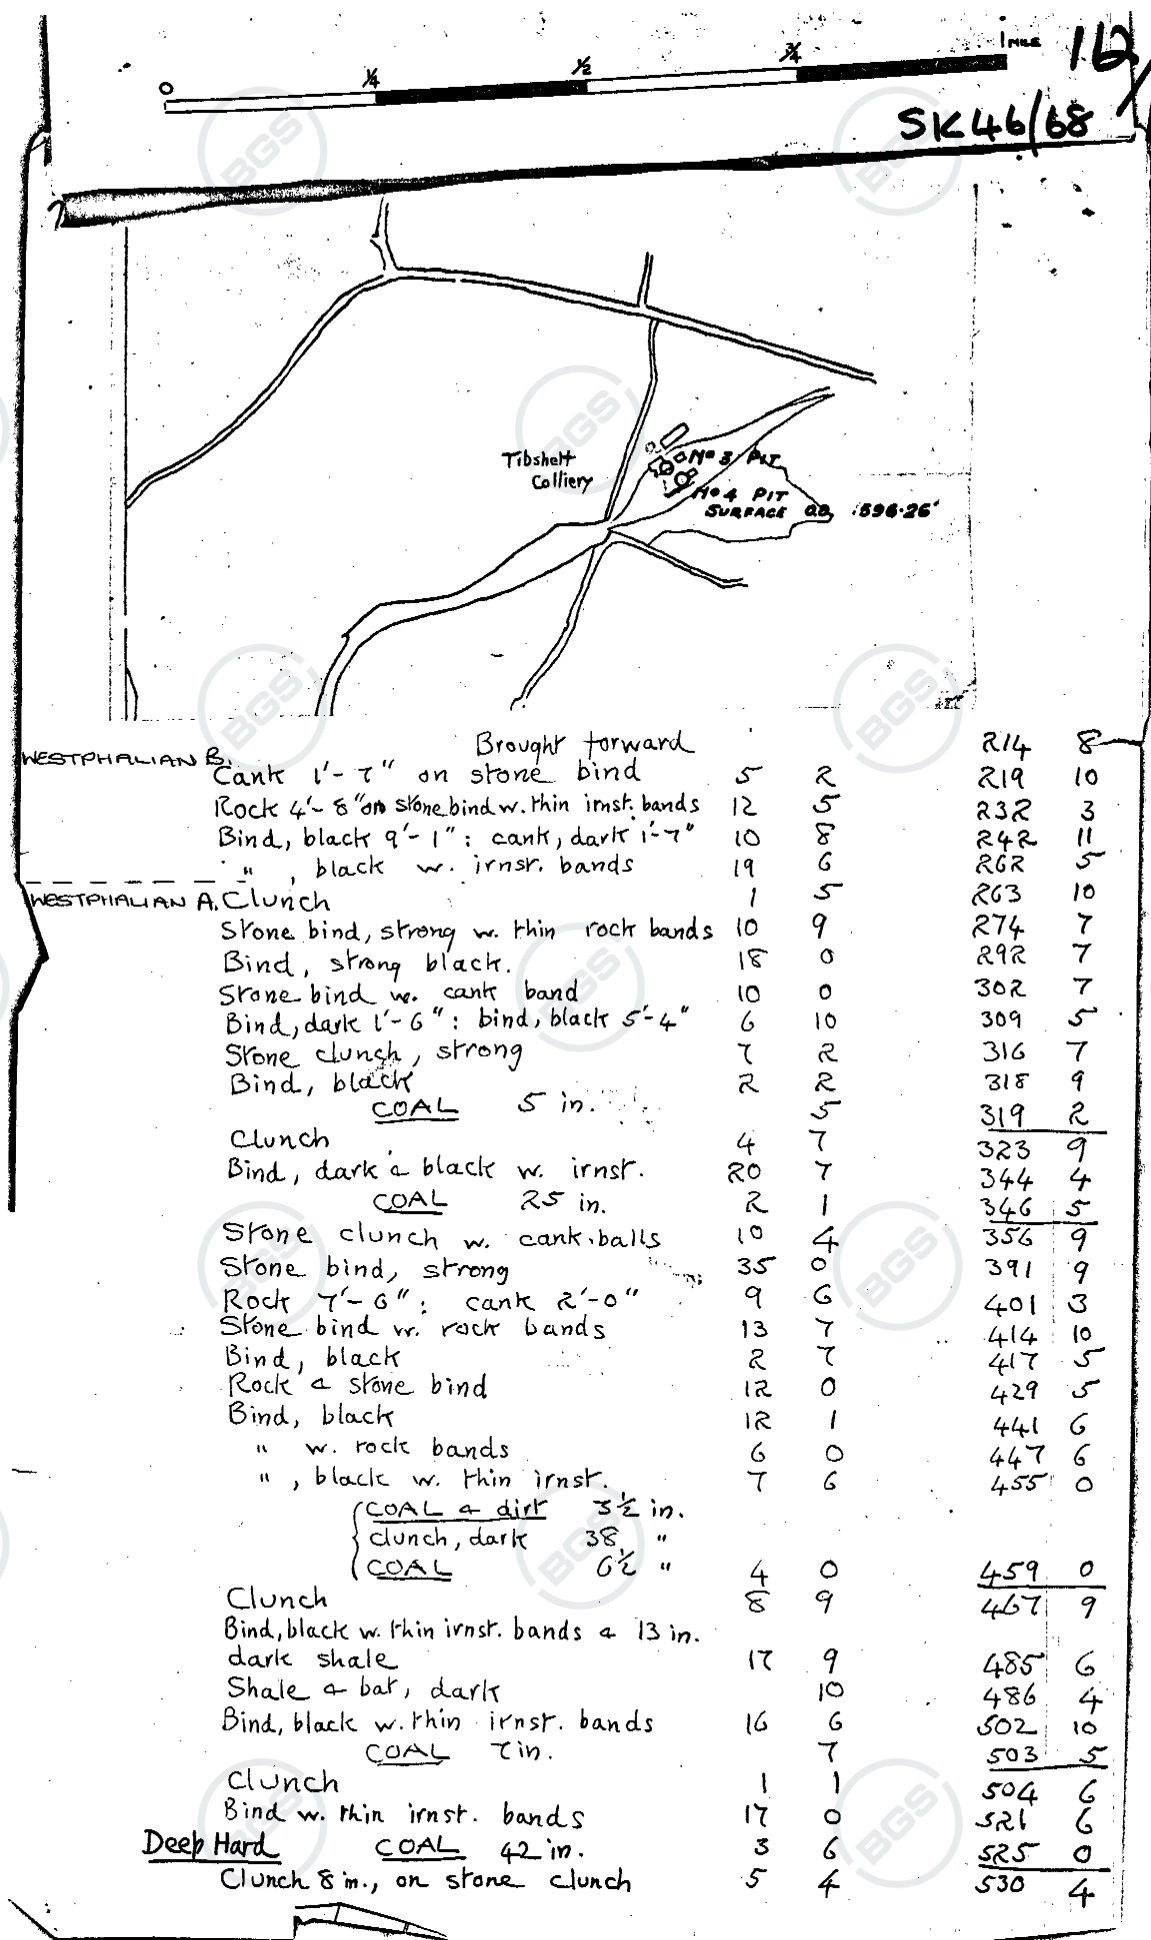 0 1/4 1/2 3/4 1 MILE
SK46/68
Tibshelf
Colliery
No 3 PIT
No 4 PIT
SURFACE O.D. 596.26'
Brought forward 214 8
WESTPHALIAN B.
Cank 1'-7" on stone bind 5 2 219 10
Rock 4'-8" on stone bind w. thin irnst. bands 12 5 232 3
Bind, black 9'-1": cank, dark 1'-7" 10 8 242 11
" , black w. irnst. bands 19 6 262 5
WESTPHALIAN A. Clunch 1 5 263 10
Stone bind, strong w. thin rock bands 10 9 274 7
Bind, strong black. 18 0 292 7
Stone bind w. cank band 10 0 302 7
Bind, dark 1'-6": bind, black 5'-4" 6 10 309 5
Stone clunch, strong 7 2 316 7
Bind, black 2 2 318 9
COAL 5 in. 5 319 2
Clunch 4 7 323 9
Bind, dark & black w. irnst. 20 7 344 4
COAL 25 in. 2 1 346 5
Stone clunch w. cank balls 10 4 356 9
Stone bind, strong 35 0 391 9
Rock 7'-6": cank 2'-0" 9 6 401 3
Stone bind w. rock bands 13 7 414 10
Bind, black 2 7 417 5
Rock & stone bind 12 0 429 5
Bind, black 12 1 441 6
" w. rock bands 6 0 447 6
" , black w. thin irnst. 7 6 455 0
COAL & dirt 3½ in.
clunch, dark 38 "
COAL 6½ " 4 0 459 0
Clunch 8 9 467 9
Bind, black w. thin irnst. bands & 13 in.
dark shale 17 9 485 6
Shale & bat, dark 10 486 4
Bind, black w. thin irnst. bands 16 6 502 10
COAL 7 in. 7 503 5
Clunch 1 1 504 6
Bind w. thin irnst. bands 17 0 521 6
Deep Hard COAL 42 in. 3 6 525 0
Clunch 8 in., on stone clunch 5 4 530 4